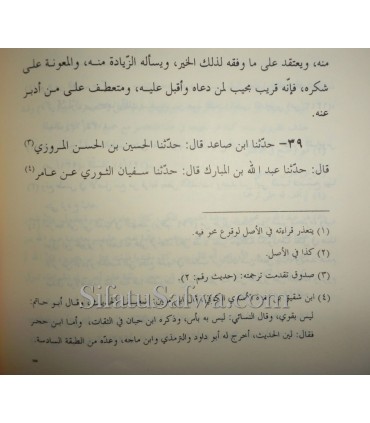 منه، ويعتقد على ما وفقه لذلك الخير، ويسأله الزّيادة منه، والمعونة على
شكره، فإنّه قريب مجيب لمن دعاه وأقبل عليه، ومتعطف على من أدبر
عنه.
٣٩- حدّثنا ابن صاعد قال: حدّثنا الحسين بن الحسن المروزي(٣)
قال: حدّثنا عبد الله بن المبارك قال: حدّثنا سفيان الثوري عن عامر(٤)
(١) يتعذر قراءته في الأصل لوقوع محو فيه.
(٢) كذا في الأصل.
(٣) صدوق تقدمت ترجمته: (حديث رقم: ٢).
(٤) ابن شقيق بن وقال أبو حاتم:
ليس بقوي، وقال النسائي: ليس به بأس، وذكره ابن حبان في الثقات، وأما ابن حجر
فقال: لين الحديث، أخرج له أبو داود والترمذي وابن ماجه، وعدّه من الطبقة السادسة.
SifatuSafwa.com